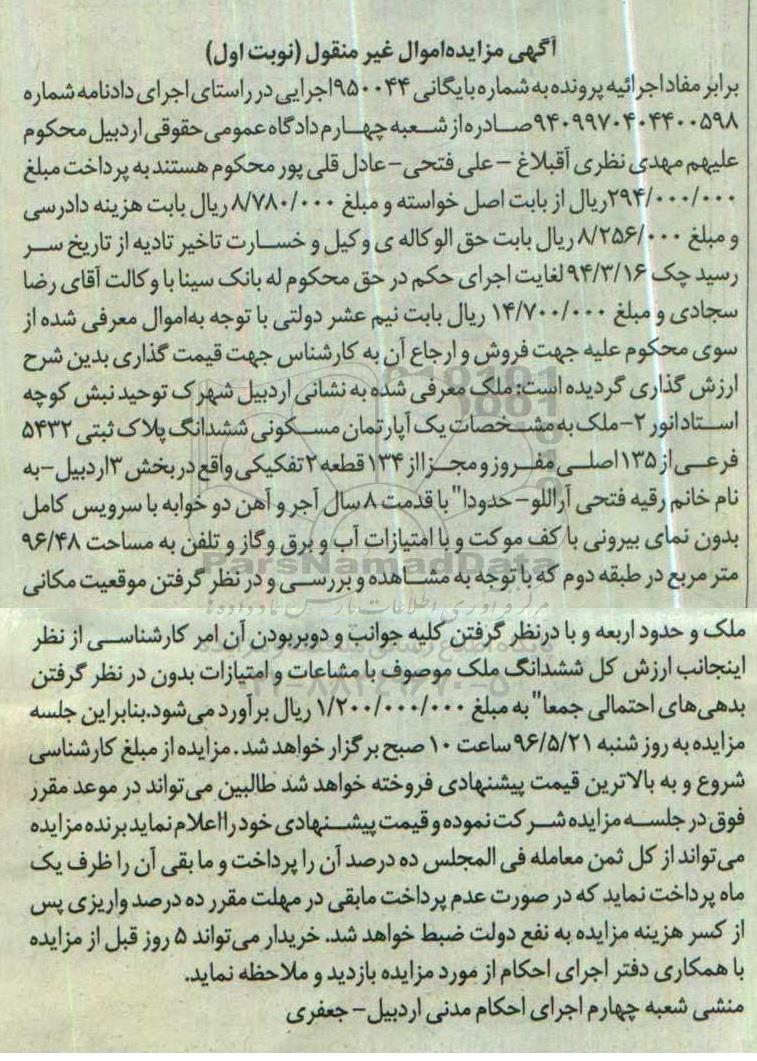 آگهی مزایده اموال غیر منقول (نوبت اول)
برابر مفاد اجرائیه پرونده به شماره بایگانی ۹۵۰۰۴۴اجرایی در راستای اجرای دادنامه شماره
۹۴۰۹۹۷۰۴۰۴۴۰۰۵۹۸صادره از شعبه چهارم دادگاه عمومی حقوقی اردبیل محکوم
علیهم مهدی نظری آقبلاغ – علی فتحی-عادل قلی پور محکوم هستند به پرداخت مبلغ
۲۹۴/۰۰۰/۰۰۰ریال از بابت اصل خواسته و مبلغ ۸/۷۸۰/۰۰۰ ریال بابت هزینه دادرسی
و مبلغ ۸/۲۵۶/۰۰۰ ریال بابت حق الوکاله ی وکیل و خسارت تاخیر تادیه از تاریخ سر
رسید چک ۹۴/۳/۱۶ لغایت اجرای حکم در حق محکوم له بانک سینا با وکالت آقای رضا
سجادی و مبلغ ۱۴/۷۰۰/۰۰۰ ریال بابت نیم عشر دولتی با توجه به اموال معرفی شده از
سوی محکوم علیه جهت فروش و ارجاع آن به کارشناس جهت قیمت گذاری بدین شرح
ارزش گذاری گردیده است: ملک معرفی شده به نشانی اردبیل شهرک توحید نبش کوچه
استاد انور ۲-ملک به مشخصات یک آپارتمان مسکونی ششدانگ پلاک ثبتی ۵۴۳۲
فرعی از ۱۳۵ اصلی مفروز و مجزا از ۱۳۴ قطعه ۲ تفکیکی واقع در بخش ۳اردبیل -به
نام خانم رقیه فتحی آراللو- حدودا" با قدمت ۸ سال آجر و آهن دو خوابه با سرویس کامل
بدون نمای بیرونی با کف موکت و با امتیازات آب و برق و گاز و تلفن به مساحت ۹۶/۴۸
متر مربع در طبقه دوم که با توجه به مشاهده و بررسی و در نظر گرفتن موقعیت مکانی
ملک و حدود اربعه و با درنظر گرفتن کلیه جوانب و دوبربودن آن امر کارشناسی از نظر
اینجانب ارزش کل ششدانگ ملک موصوف با مشاعات و امتیازات بدون در نظر گرفتن
بدهی های احتمالی جمعا" به مبلغ ۱/۲۰۰/۰۰۰/۰۰۰ ریال برآورد می شود.بنابراین جلسه
مزایده به روز شنبه ۹۶/۵/۲۱ ساعت ۱۰ صبح برگزار خواهد شد. مزایده از مبلغ کارشناسی
شروع و به بالاترین قیمت پیشنهادی فروخته خواهد شد طالبین می تواند در موعد مقرر
فوق در جلسه مزایده شرکت نموده و قیمت پیشنهادی خود را اعلام نماید برنده مزایده
می تواند از کل ثمن معامله فی المجلس ده درصد آن را پرداخت و ما بقی آن را ظرف یک
ماه پرداخت نماید که در صورت عدم پرداخت مابقی در مهلت مقرر ده درصد واریزی پس
از کسر هزینه مزایده به نفع دولت ضبط خواهد شد. خریدار می تواند ۵ روز قبل از مزایده
با همکاری دفتر اجرای احکام از مورد مزایده بازدید و ملاحظه نماید.
منشی شعبه چهارم اجرای احکام مدنی اردبیل- جعفری
ParsNamadData